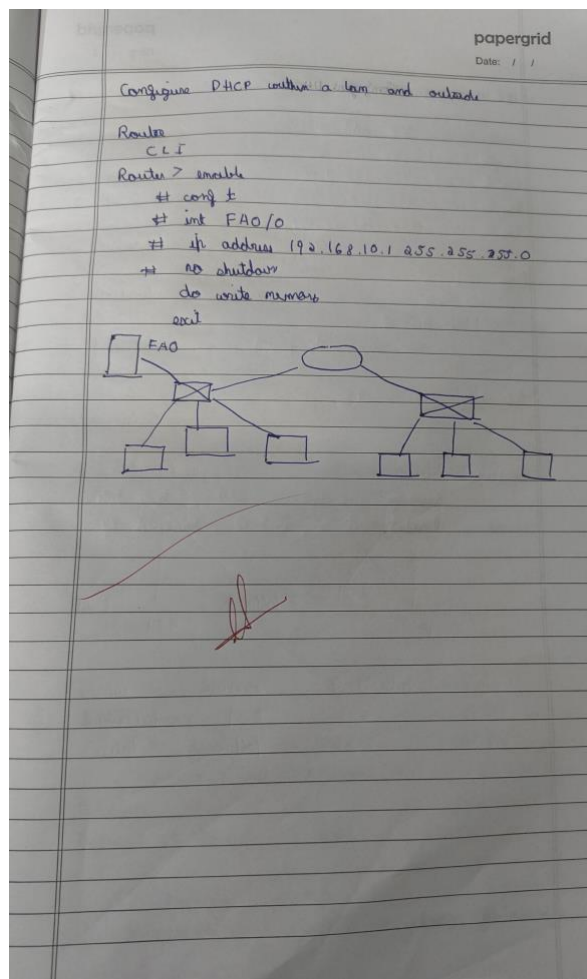 papergrid
Date: / /
Configure DHCP within a lan and outside
Router
CLI
Router > enable
# conf t
# int FA0/0
# ip address 192.168.10.1 255.255.255.0
# no shutdown
do write memory
exit
FA0